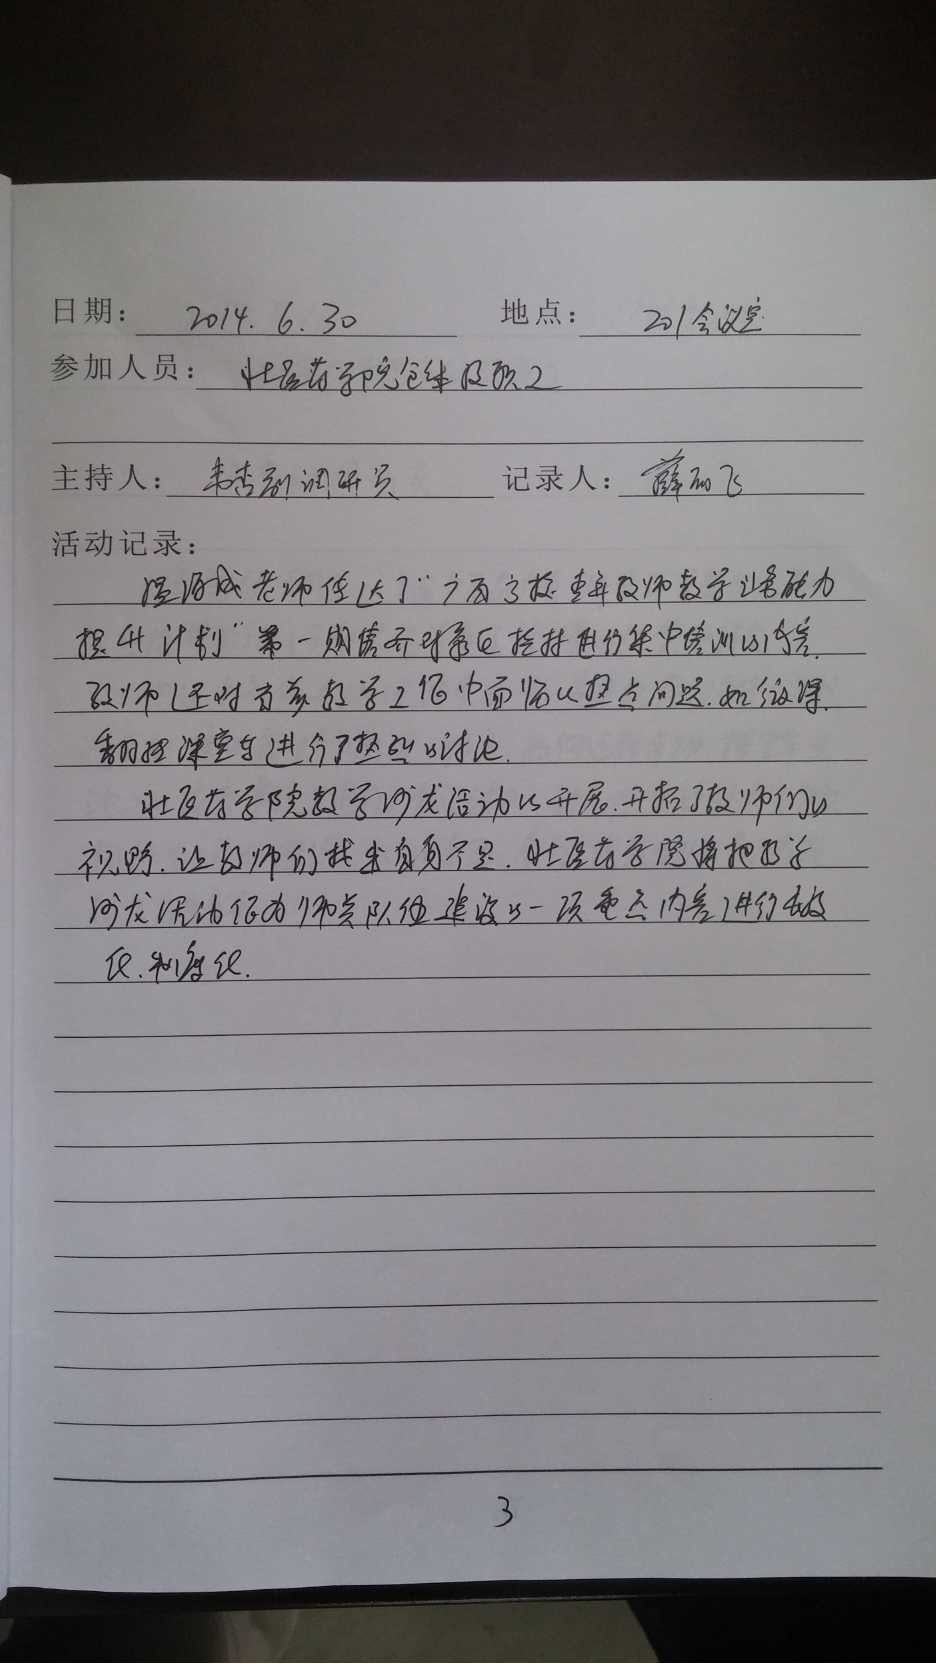 日期： 2014.6.30 地点： 201会议室
参加人员： 壮医药学院全体教职工
主持人： 韦 副调研员 记录人： 薛丽飞
活动记录：
温海成老师传达了"广西高校青年教师教学业务能力
提升计划"第一期 进行集中培训的内容.
教师还对当前教学工作中面临的热点问题.如微课.
翻转课堂等进行了热烈的讨论.
壮医药学院教学沙龙活动的开展.开拓了教师们的
视野.让教师们找出自身不足.壮医药学院将把教学
沙龙活动作为师资队伍建设的一项重点内容进行长效
化.制度化.
3